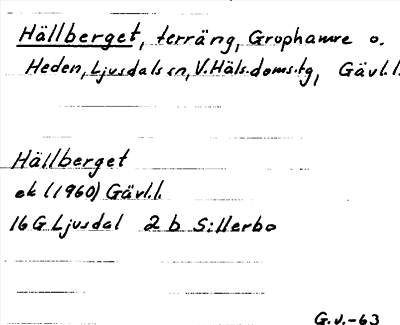 Hällberget, terräng, Grophamre o.
Heden, Ljusdals sn, V. Häls. doms.tg, Gävl.l.
Hällberget
ek (1960) Gävl.l.
16 G Ljusdal 2 b Sillerbo
G.J.-63